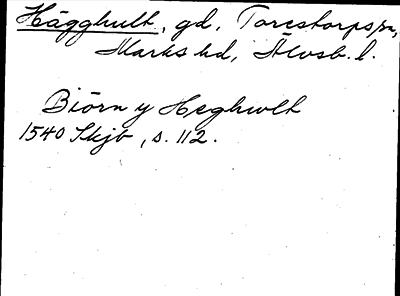 Hägghult, gd, Torestorps sn,
Marks hd, Älvsb. l.
Biörn y Heghwlt
1540 Skjb, s. 112.